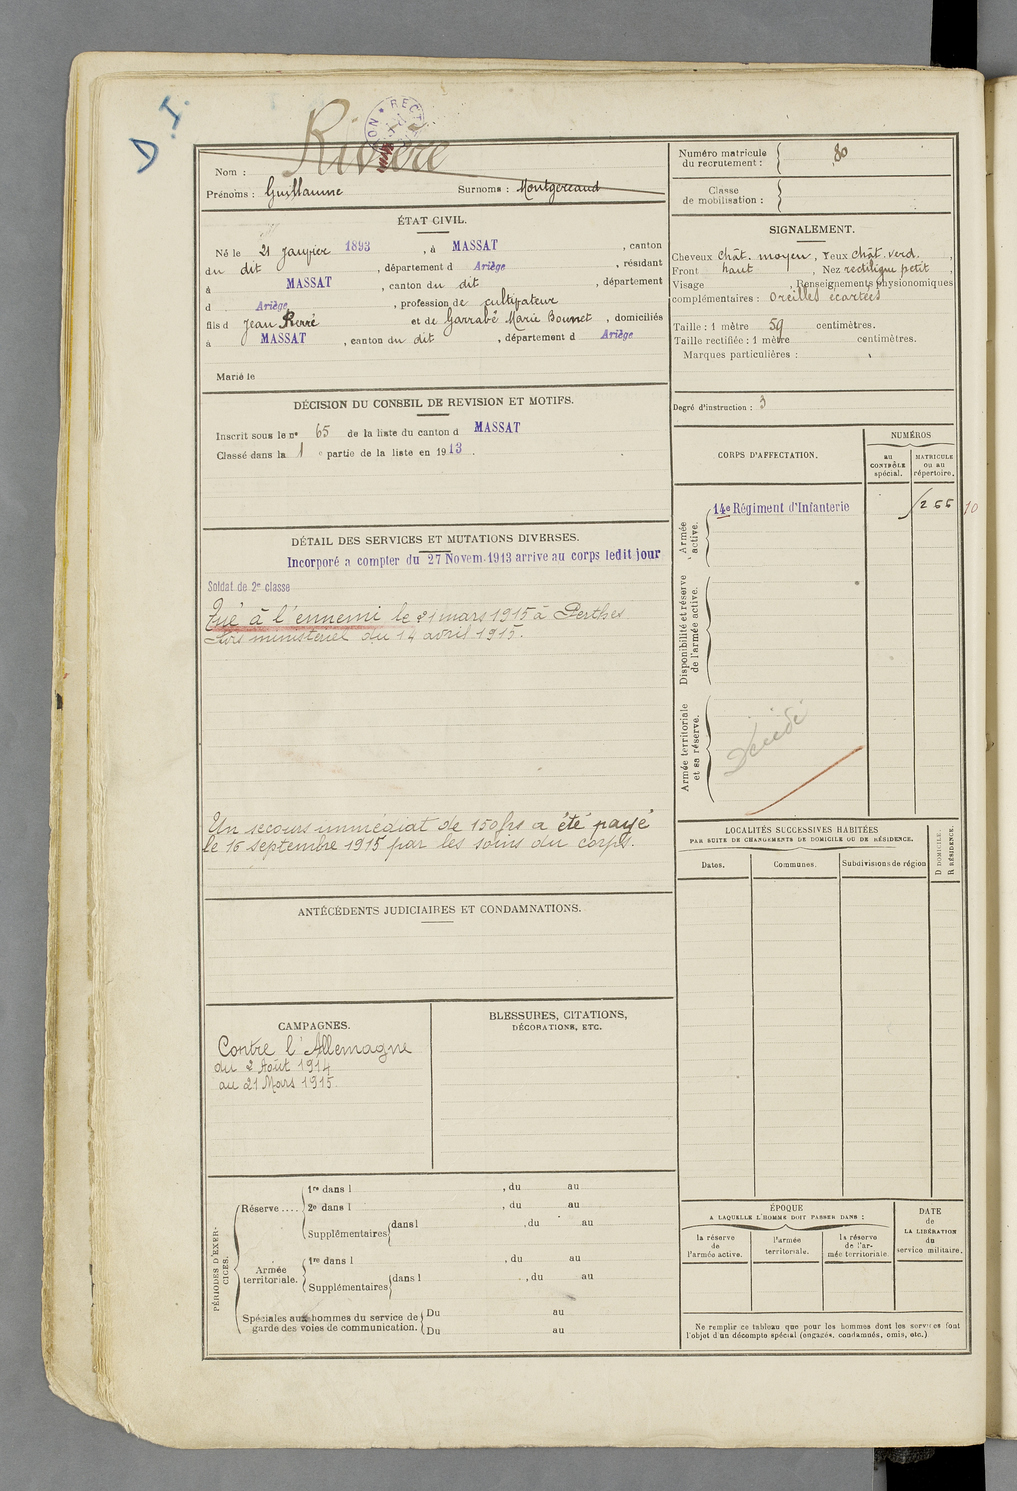 D.I.
Rivière
RECT
Nom :
Prénoms : Guillaume Surnoms : Montgereaud
Numéro matricule
du recrutement : 80
Classe
de mobilisation :
ÉTAT CIVIL.
Né le 21 Janvier 1893, à MASSAT, canton
du dit, département d Ariège, résidant
à MASSAT, canton du dit, département
d Ariège, profession de cultivateur
fils d Jean Pierre et de Garrabé Marie Bounet, domiciliés
à MASSAT, canton du dit, département d Ariège
Marié le
SIGNALEMENT.
Cheveux chât. moyen, Yeux chât. verd.,
Front haut, Nez rectiligne petit,
Visage , Renseignements physionomiques
complémentaires : Oreilles écartées
Taille : 1 mètre 59 centimètres.
Taille rectifiée : 1 mètre centimètres.
Marques particulières :
Degré d'instruction : 3
DÉCISION DU CONSEIL DE REVISION ET MOTIFS.
Inscrit sous le nº 65 de la liste du canton d MASSAT
Classé dans la 1 e partie de la liste en 1913.
DÉTAIL DES SERVICES ET MUTATIONS DIVERSES.
Incorporé a compter du 27 Novem. 1913 arrive au corps ledit jour
Soldat de 2e classe
Tué à l'ennemi le 21 mars 1915 à Perthes
Avis ministériel du 14 avril 1915.
Un secours immédiat de 150 frs a été payé
le 16 septembre 1915 par les soins du corps.
CORPS D'AFFECTATION.
NUMÉROS
au
CONTRÔLE
spécial.
MATRICULE
ou au
répertoire.
Armée
active.
14e Régiment d'Infanterie
10
Disponibilité et réserve
de l'armée active.
Armée territoriale
et sa réserve.
Décédé
LOCALITÉS SUCCESSIVES HABITÉES
PAR SUITE DE CHANGEMENTS DE DOMICILE OU DE RÉSIDENCE.
Dates.
Communes.
Subdivisions de région
D DOMICILE.
R RÉSIDENCE.
ANTÉCÉDENTS JUDICIAIRES ET CONDAMNATIONS.
CAMPAGNES.
Contre l'Allemagne
du 2 Août 1914
au 21 Mars 1915.
BLESSURES, CITATIONS,
DÉCORATIONS, ETC.
PÉRIODES D'EXER-
CICES.
Réserve ....
1re dans l , du au
2e dans l , du au
Supplémentaires dans l , du au
Armée
territoriale.
1re dans l , du au
Supplémentaires dans l , du au
Spéciales aux hommes du service de
garde des voies de communication.
Du au
Du au
ÉPOQUE
A LAQUELLE L'HOMME DOIT PASSER DANS :
la réserve
de
l'armée active.
l'armée
territoriale.
la réserve
de l'ar-
mée territoriale.
DATE
de
LA LIBÉRATION
du
service militaire.
Ne remplir ce tableau que pour les hommes dont les services font
l'objet d'un décompte spécial (engagés, condamnés, omis, etc.)